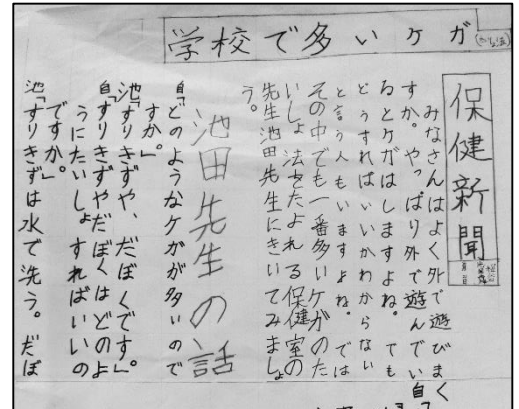 学校で多いケガ
保健新聞
みなさんはよく外で遊びま
すか。やっぱり外で遊んでい
るとケガはしますよね。ても
どうすればいいかわからない
と言う人もいますよね。では
その中でも一番多いケガのた
いしょ法をたよれる保健室の
先生池田先生にきいてみましょ
う。
池田先生の話
自「どのようなケガが多いので
すか。」
池「すりきずや、だぼくです。」
自「すりきずやだぼくはどのよ
うにたいしょすればいいの
ですか。」
池「すりきずは水で洗う。だぼ